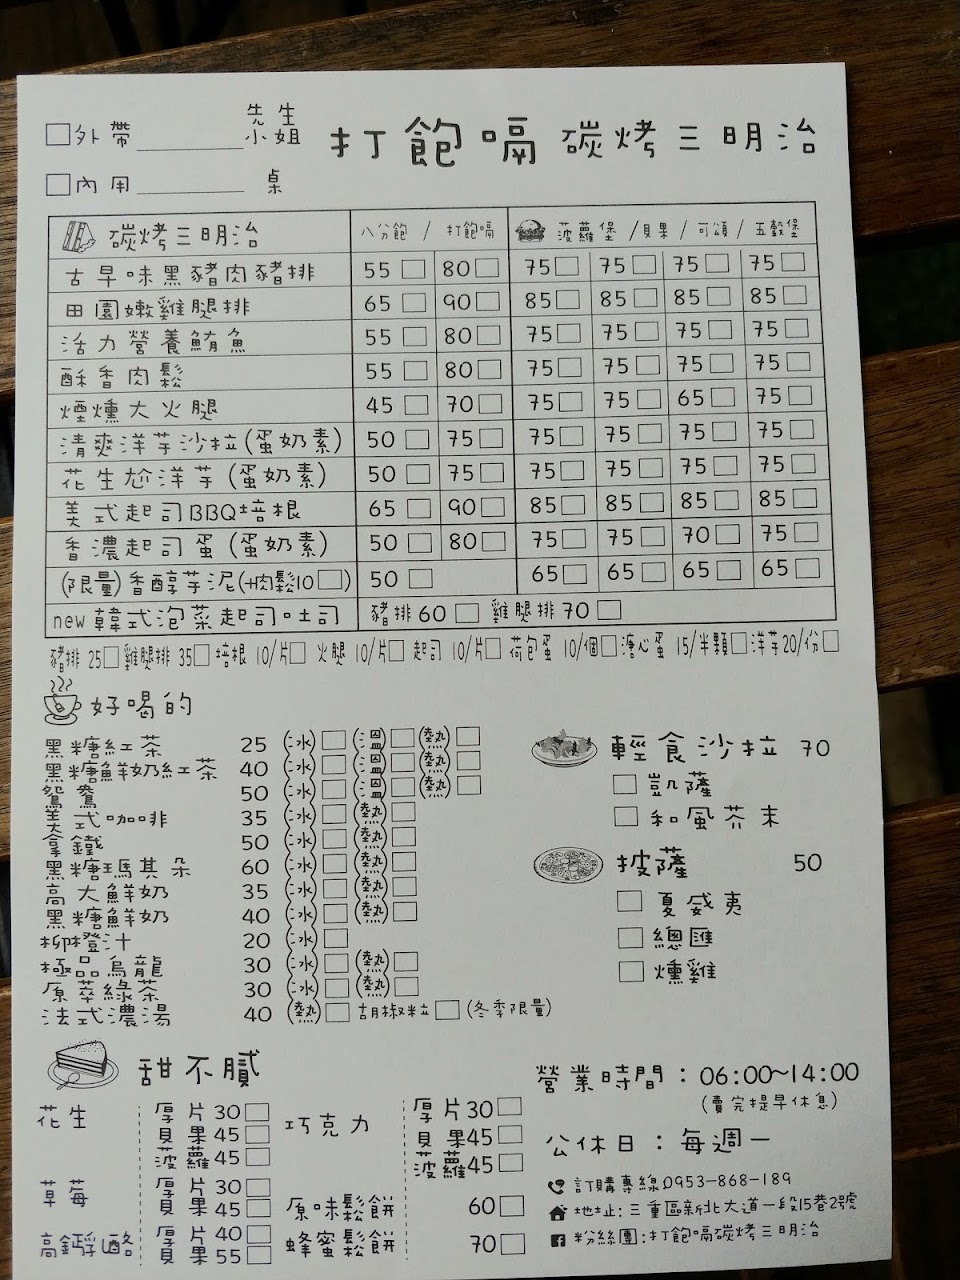 □外帶________先生小姐
打飽嗝 碳烤三明治
□內用________桌
碳烤三明治 八分飽 / 打飽嗝 菠蘿堡 / 貝果 / 可頌 / 五穀堡
古早味黑豬肉豬排 55 □ 80 □ 75 □ 75 □ 75 □ 75 □
田園嫩雞腿排 65 □ 90 □ 85 □ 85 □ 85 □ 85 □
活力營養鮪魚 55 □ 80 □ 75 □ 75 □ 75 □ 75 □
酥香肉鬆 55 □ 80 □ 75 □ 75 □ 75 □ 75 □
煙燻大火腿 45 □ 70 □ 75 □ 75 □ 65 □ 75 □
清爽洋芋沙拉(蛋奶素) 50 □ 75 □ 75 □ 75 □ 75 □ 75 □
花生尬洋芋(蛋奶素) 50 □ 75 □ 75 □ 75 □ 75 □ 75 □
美式起司BBQ培根 65 □ 90 □ 85 □ 85 □ 85 □ 85 □
香濃起司蛋(蛋奶素) 50 □ 80 □ 75 □ 75 □ 70 □ 75 □
(限量)香醇芋泥(+肉鬆10□) 50 □ 65 □ 65 □ 65 □ 65 □
new韓式泡菜起司吐司 豬排60 □ 雞腿排70 □
豬排 25□雞腿排 35□ 培根 10/片□ 火腿 10/片□ 起司 10/片□ 荷包蛋 10/個□溏心蛋 15/半顆□洋芋20/份□
好喝的
黑糖紅茶 25 (冰)□(溫)□(熱)□
黑糖鮮奶紅茶 40 (冰)□(溫)□(熱)□
鴛鴦 50 (冰)□(溫)□(熱)□
美式咖啡 35 (冰)□(熱)□
拿鐵 50 (冰)□(熱)□
黑糖瑪其朵 60 (冰)□(熱)□
高大鮮奶 35 (冰)□(熱)□
黑糖鮮奶 40 (冰)□(熱)□
柳橙汁 20 (冰)□
極品烏龍 30 (冰)□(熱)□
原萃綠茶 30 (冰)□(熱)□
法式濃湯 40 (熱)□胡椒粒□(冬季限量)
輕食沙拉 70
□ 凱薩
□ 和風芥末
披薩 50
□ 夏威夷
□ 總匯
□ 燻雞
甜不膩
花生 厚片30□
貝果45□
菠蘿45□
草莓 厚片30□
貝果45□
高鈣乳酪 厚片40□
貝果55□
巧克力 厚片30□
貝果45□
菠蘿45□
原味鬆餅 60□
蜂蜜鬆餅 70□
營業時間：06:00~14:00
(賣完提早休息)
公休日：每週一
訂購專線:0953-868-189
地址:三重區新北大道一段15巷2號
粉絲團:打飽嗝碳烤三明治